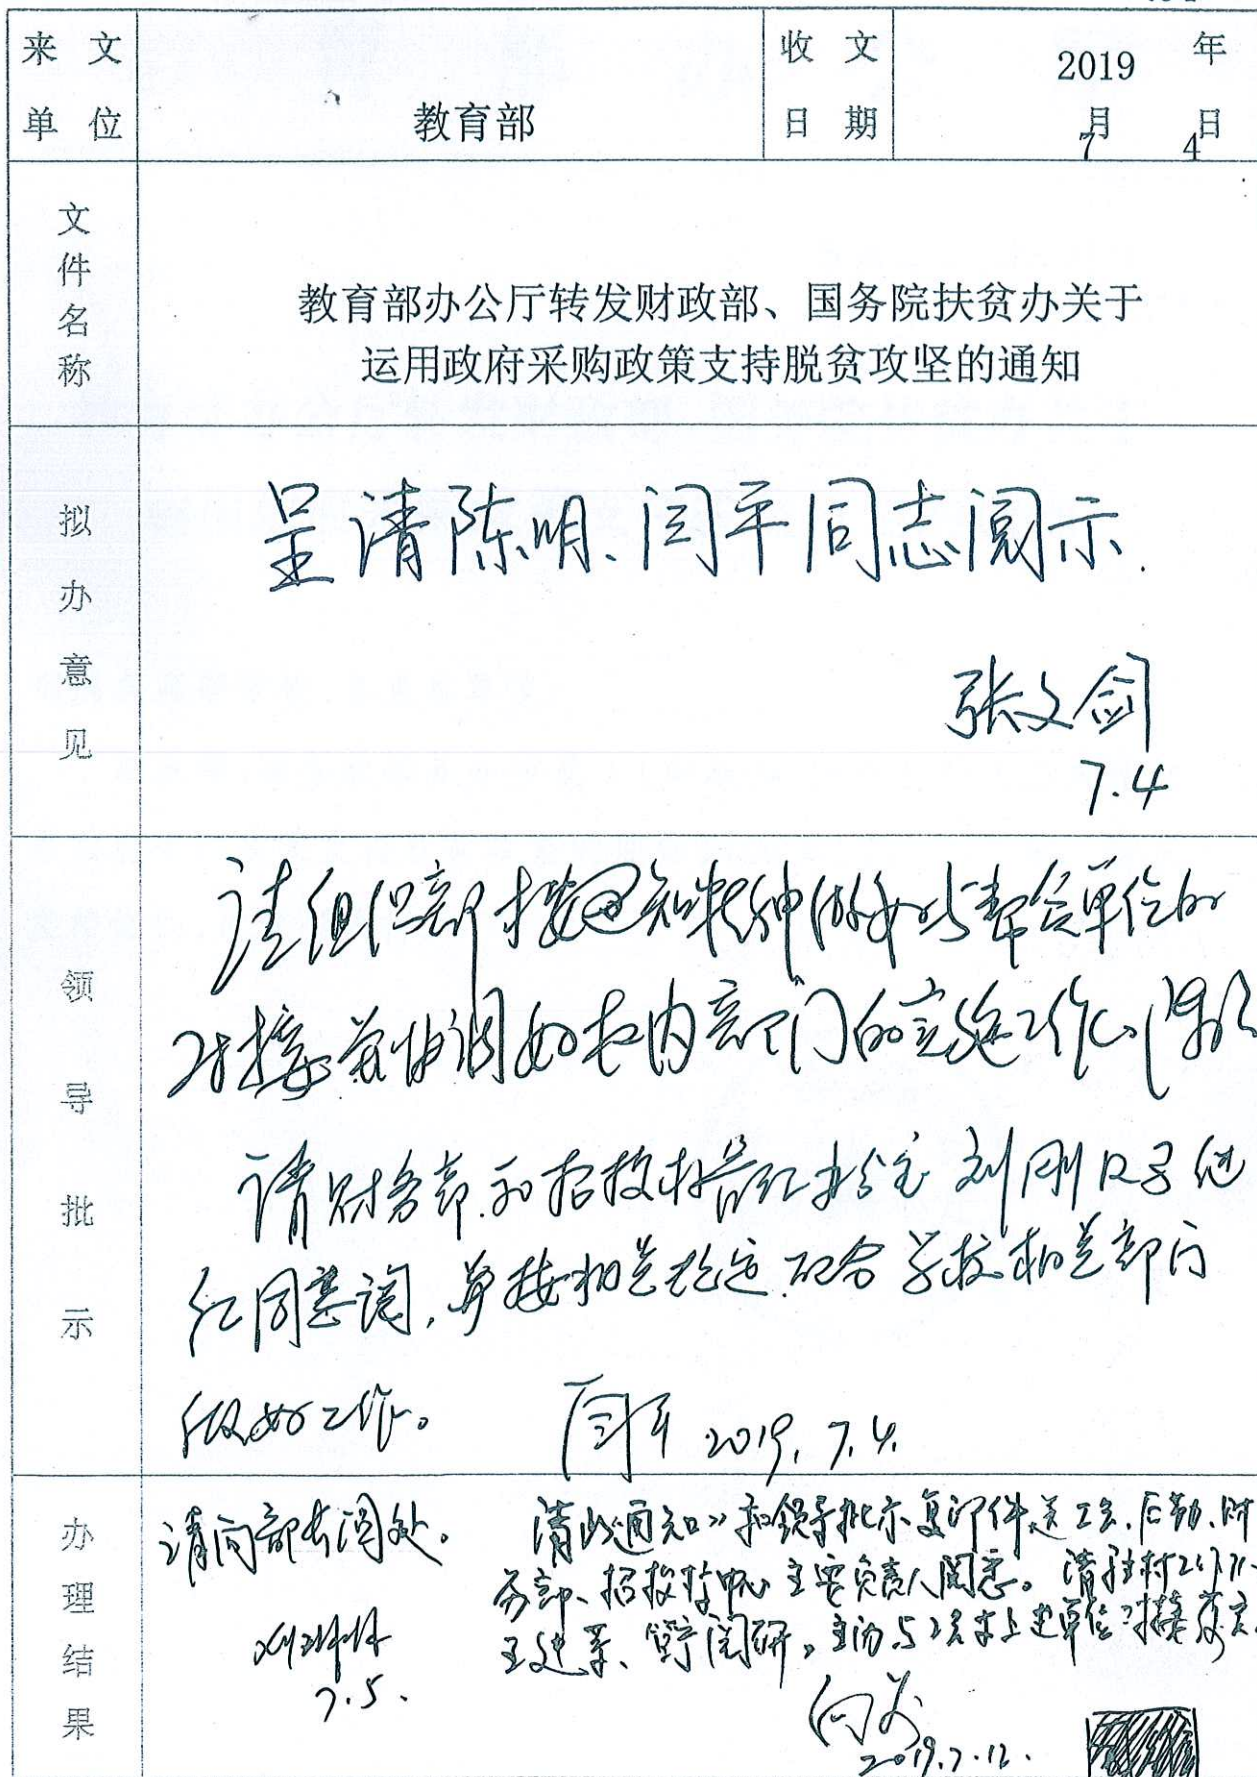 来文 收文 年
2019
单位 教育部 日期 月 日
7 4
文件名称
教育部办公厅转发财政部、国务院扶贫办关于
运用政府采购政策支持脱贫攻坚的通知
拟办意见
呈请陈明、闫平同志阅示.
张文剑
7.4
领导批示
请组织部按通知精神做好与帮合单位的
对接并协调好校内部门的实施工作
请财务部和招投标 办公室 刘刚
红同志阅,并按相关规定配合学校相关部门
做好工作。 闫平 2019.7.4.
办理结果
请向部长阅处。
7.5.
请此通知》和领导批示复印件送工会、后勤、财
务部、招投标中心主要负责人阅悉。请驻村
阅研,主动与 上述单位对接落实
2019.7.12.